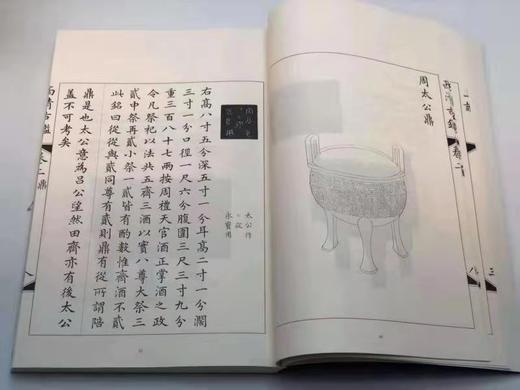 西清古鑑 卷二
八
三
周太公鼎
太公作
永寶用
右高八寸五分深五寸一分耳高二寸一分濶
三寸一分口徑一尺六分腹圍三尺三寸九分
重三百八十七兩按周禮天官酒正掌酒之政
令凡祭祀以法共五齊三酒以實八尊大祭三
貳中祭再貳小祭一貳皆有酌數惟齊酒不貳
此銘曰從從與貳同尊有貳則鼎有從所謂陪
鼎是也太公意為呂公望然田齊亦有後太公
蓋不可考矣
西清古鑑 卷二鼎